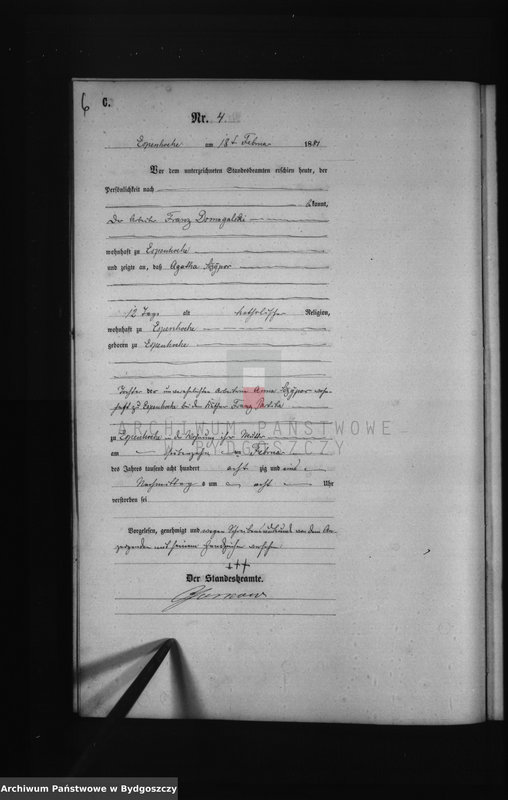 6
C.
Nr. 4.
am 18t Februar 1881
Vor dem unterzeichneten Standesbeamten erschien heute, der
Persönlichkeit nach
kannt,
Der Arbeiter Franz Domagalski
wohnhaft zu
und zeigte an, daß Agatha
12 Tage alt katholischer Religion,
wohnhaft zu
geboren zu
Tochter der unverehelichten Arbeiterin Anna wohn-
haft zu bei dem Franz
ARCHIWUM PAŃSTWOWE
W BYDGOSZCZY
zu in der Wohnung ihrer Mutter
am siebenzehn ten Februar
des Jahres tausend acht hundert acht zig und eins
Nachmittag s um acht Uhr
verstorben sei
Vorgelesen, genehmigt und wegen Schreibensunkunde von dem An-
zeigenden mit seinem Handzeichen versehen.
+++
Der Standesbeamte.
Archiwum Państwowe w Bydgoszczy